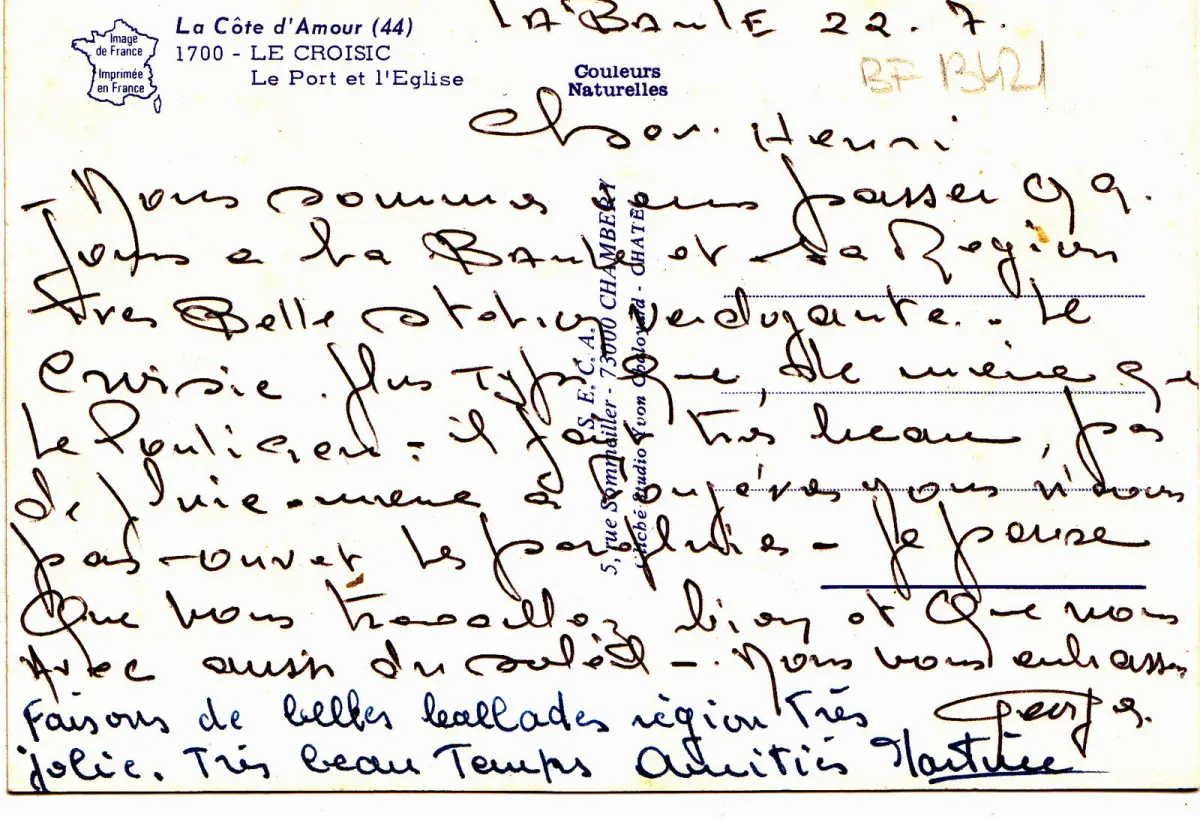 Image
de France
Imprimée
en France
La Côte d'Amour (44)
1700 - LE CROISIC
Le Port et l'Eglise
Couleurs
Naturelles
LA BAULE 22.7.
BF 13421
Cher. Henri
- Nous sommes passer qq.
Jours a La BAule et sa Region
tres Belle station verdoyante. - Le
Croisic. plus Typ que, de meme que
Le Pouliguen - il fait très beau, pas
de pluie - meme à nous n'avons
pas - ouvert Les parapluies - Je pense
Que vous travaillez bien et Que vous
Avec aussi du soleil - . Nous vous embrassons
Georges.
Faisons de belles ballades région Très
jolie. Très beau Temps Amitiés Martine
S. E. C. A.
5, rue Sommeiller - 73000 CHAMBERY
Cliché Studio Yvon Chaloyard - CHATEL